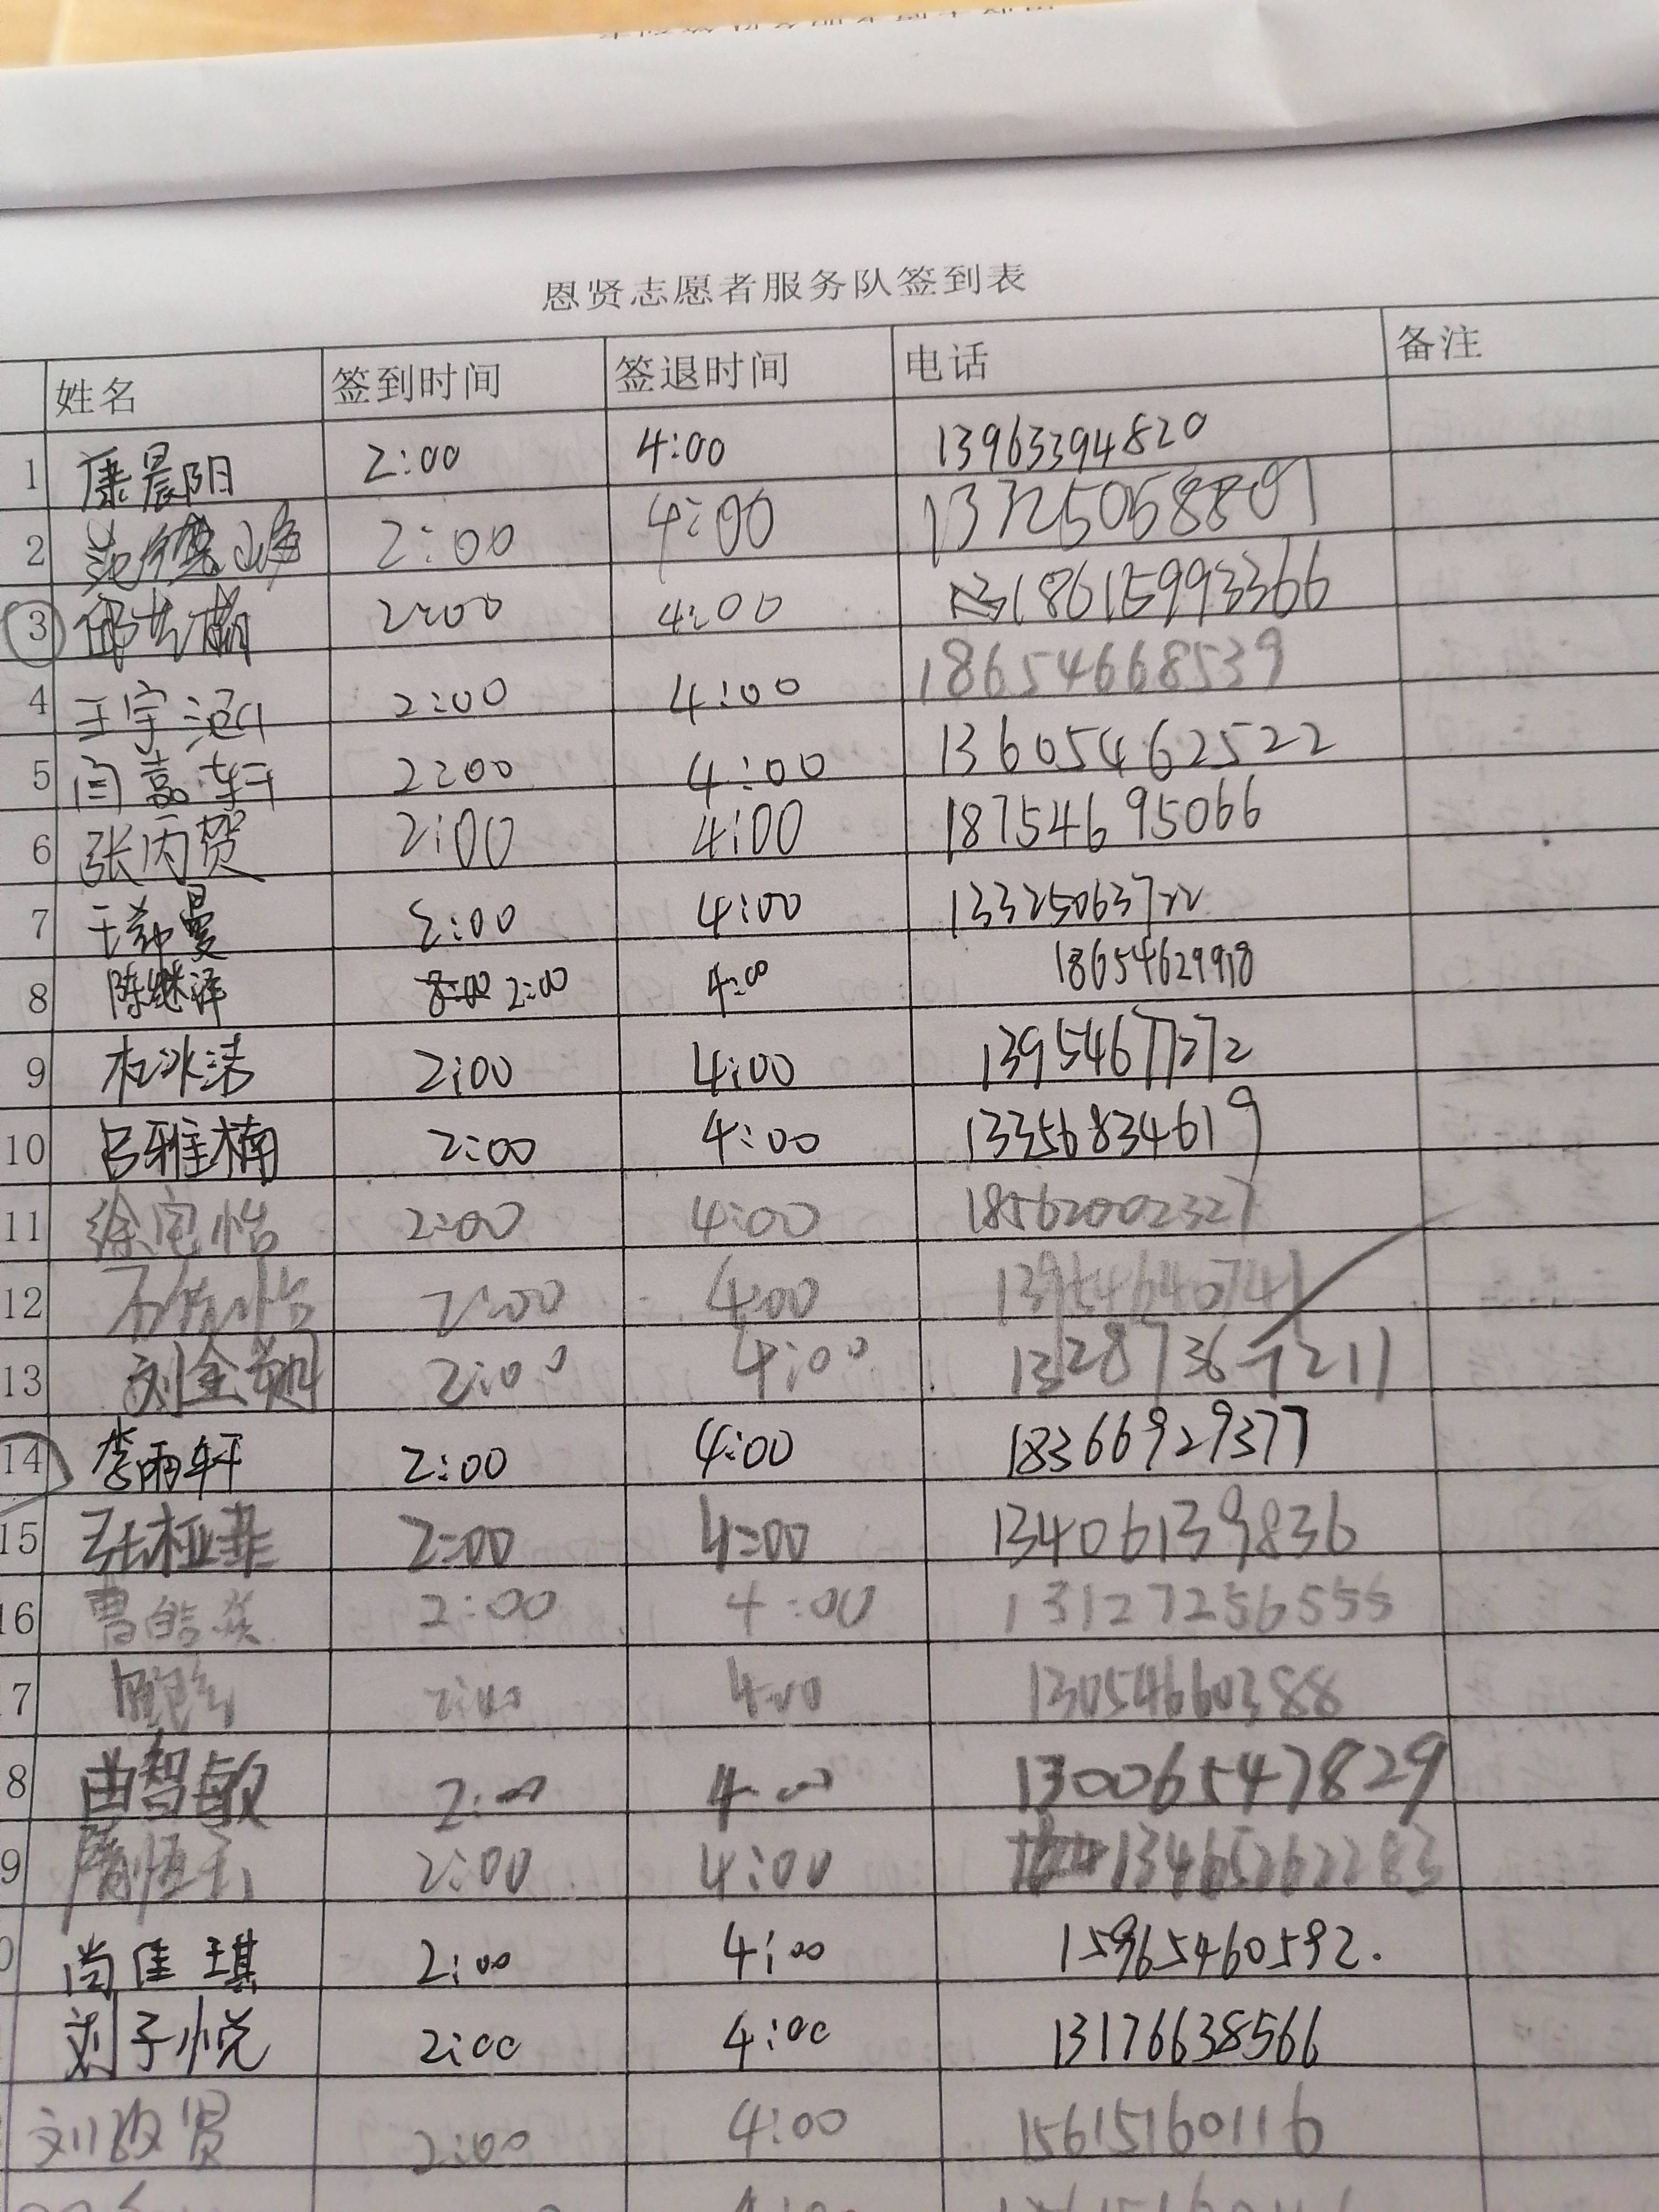 恩贤志愿者服务队签到表
姓名 签到时间 签退时间 电话 备注
1 康晨阳 2:00 4:00 13963394820
2 2:00 4:00 13325058809
3 2:00 4:00 18615993366
4 王宇涵 2:00 4:00 18654668539
5 闫嘉轩 2:00 4:00 13605462522
6 张丙贺 2:00 4:00 18754695066
7 曼 2:00 4:00 13325063722
8 陈继泽 2:00 4:00 18654629918
9 杜冰洁 2:00 4:00 13954677272
10 吕雅楠 2:00 4:00 13356834619
11 徐 怡 2:00 4:00 18562002327
12 2:00 4:00 13954640741
13 刘金 2:00 4:00
14 李雨轩 2:00 4:00 18366929377
15 张桠菲 2:00 4:00 13406139836
16 曹皓炎 2:00 4:00 13127256555
7 2:00 4:00 13054660388
8 曲智敏 2:00 4:00 13006547829
9 隋 2:00 4:00 13465262283
0 尚佳琪 2:00 4:00 15965460592.
刘子悦 2:00 4:00 13176638566
刘政贤 2:00 4:00 15615160116